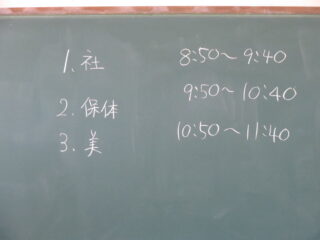 1. 社 8:50～9:40
2. 保体 9:50～10:40
3. 美 10:50～11:40